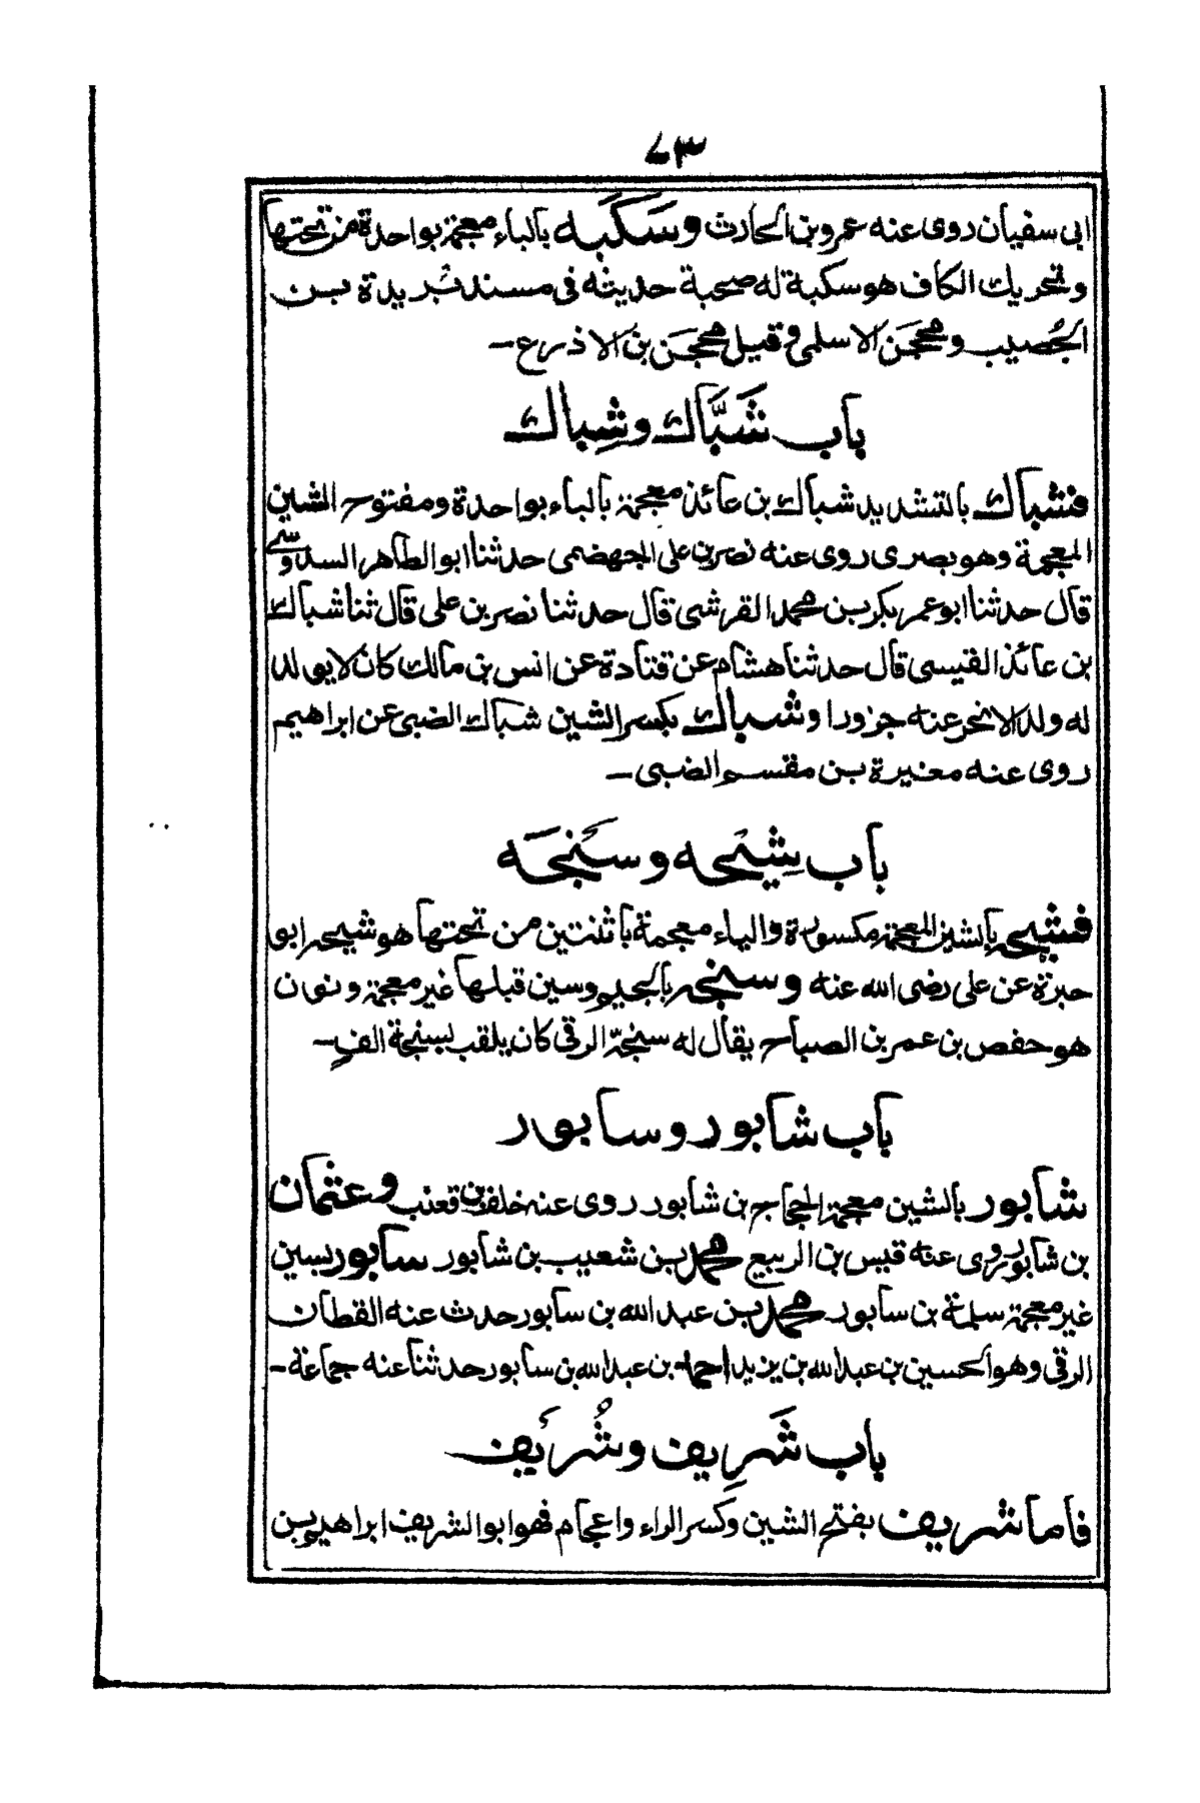 ٧٣
ابى سفيان روى عنه عمرو بن الحارث وسَكَبَه بالباء معجمة بواحدة من تحتها
وتحريك الكاف هو سكبة له صحبة حديثه فى مسند بريدة بن
الحُصيب ومحجَن الاسلمى وقيل محجَن بن الاذرع —
باب شَبَّاك وشِباك
فشباك بالتشديد شباك بن عائذ معجمة بالباء بواحدة ومفتوح الشين
المعجمة وهو بصرى روى عنه نصر بن على الجهضمى حدثنا ابو الطاهر السدوسى
قال حدثنا ابو عمر بكر بن محمد القرشى قال حدثنا نصر بن على قال ثنا شباك
بن عائذ القيسى قال حدثنا هشام عن قتادة عن انس بن مالك كان لا يولد
له ولد الا نحر عنه جزورا وشباك بكسر الشين شباك الضبى عن ابراهيم
روى عنه مغيرة بن مقسم الضبى —
باب شِيْحه وسَنجَه
فشيحه بالشين المعجمة مكسورة والياء معجمة باثنتين من تحتها هو شيحه ابو
حبرة عن على رضى الله عنه وسنجه بالجيم وسين قبلها غير معجمة ونون
هو حفص بن عمر بن الصباح يقال له سنجة الرقى كان يلقب بسنجة الف —
باب شابور وسابور
شابور بالشين معجمة الحجاج بن شابور روى عنه خلف بن قعنب وعثمان
بن شابور روى عنه قيس بن الربيع محمد بن شعيب بن شابور سابور بسين
غير معجمة سلمة بن سابور محمد بن عبد الله بن سابور حدث عنه القطان
الرقى وهو الحسين بن عبد الله بن يزيد احمد بن عبد الله بن سابور حدثنا عنه جماعة —
باب شَرِيف وشُرَيف
فاما شريف بفتح الشين وكسر الراء واعجام فهو ابو الشريف ابراهيم بن